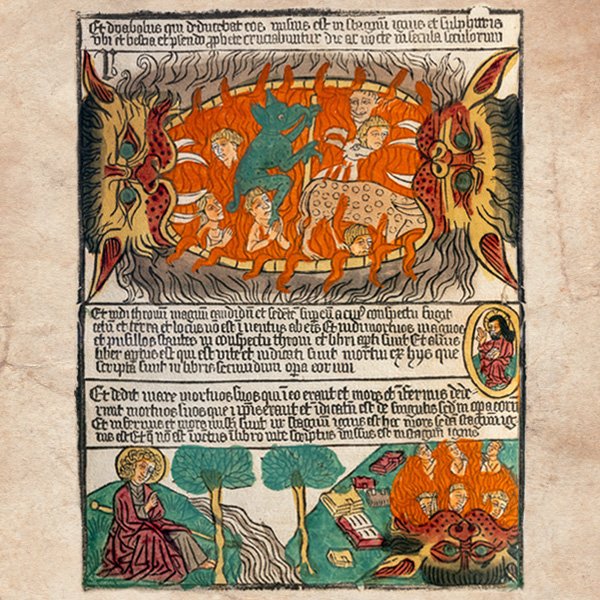 Et dyabolus qui deducebat eos missus est in stagnū ignis et sulphuris
vbi et bestia et pseudo ꝓphete cruciabuntur die ac nocte in secula seculorum
Et vidi thronum magnum candidū et sedētē sup eum a cuiꝰ conspectu fugit
terra et locus nō est inuentus ab eis Et vidi mortuos magnos
et pusillos stantes in conspectu throni et libri apti sunt Et alius
liber aptus est qui est vite et iudicati sunt mortui ex hys que
scripta sunt in libris secundum opa eorum
Et dedit mare mortuos suos qui in eo erant et mors et infernus
mortuos suos que ī ipsis erant et iudicatū est de singulis sedm opa eorū
Et infernus et mors missi sunt in stagnum ignis est hec mors seda stagnū ignis
est Et q nō est inuētus ī libro vite scriptus missus est in stagnū ignis